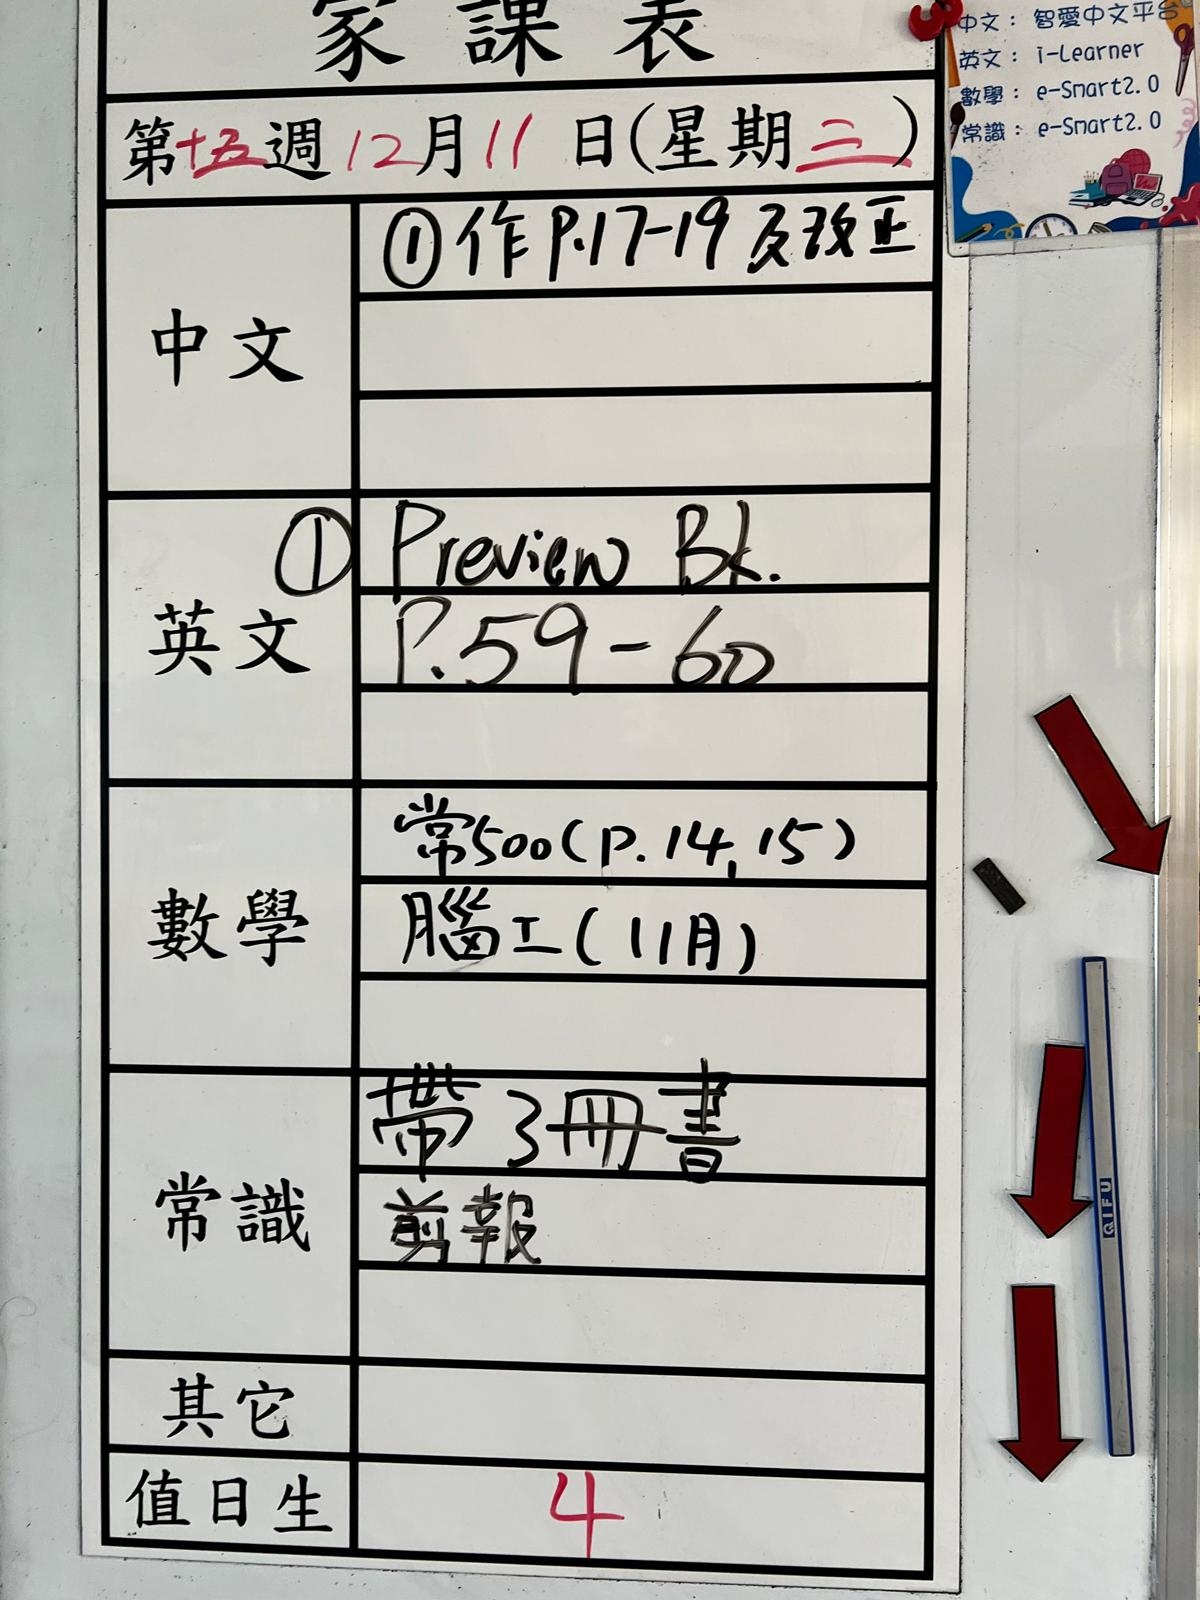 家課表
第十五週12月11日(星期三)
中文
①作P.17-19及改正
英文
① Preview Bk.
P.59-60
數學
常500(P.14,15)
腦工(11月)
常識
帶3冊書
剪報
其它
值日生
4
中文：智愛中文平台
英文：i-Learner
數學：e-Smart2.0
常識：e-Smart2.0
QIFU